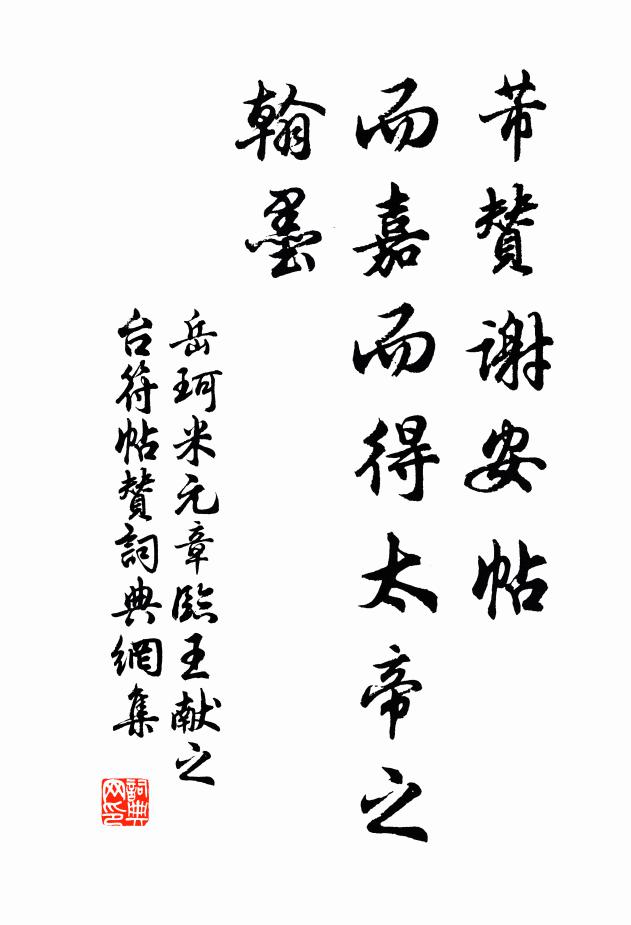 芾贊謝安帖
而嘉而得太帝之
翰墨
岳珂米元章臨王献之
台符帖贊詞典網集
詞典网印